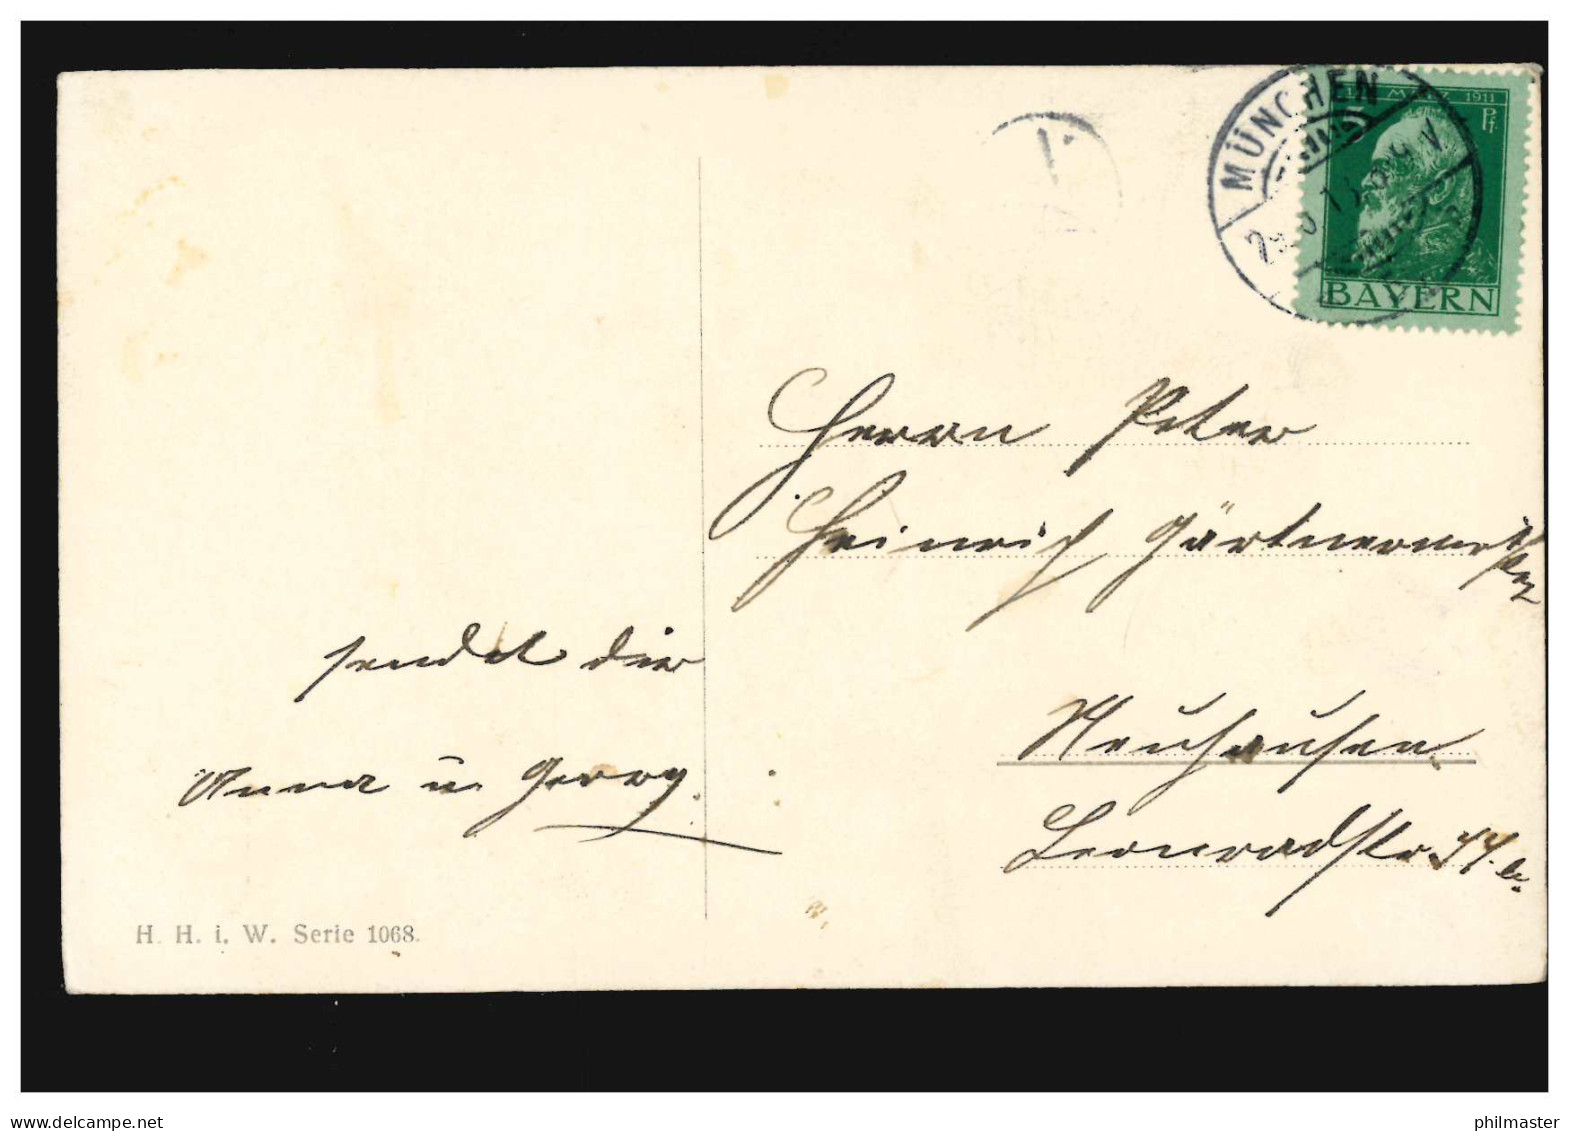 MÜNCHEN
12. MÄRZ 1911
5 Pf.
BAYERN
Herrn Peter
Heinrich Gärtnermeister
Neuhausen
Leonradstr.
sendet dir
Anna u. Georg.
H. H. i. W. Serie 1068.
www.delcampe.net
philmaster